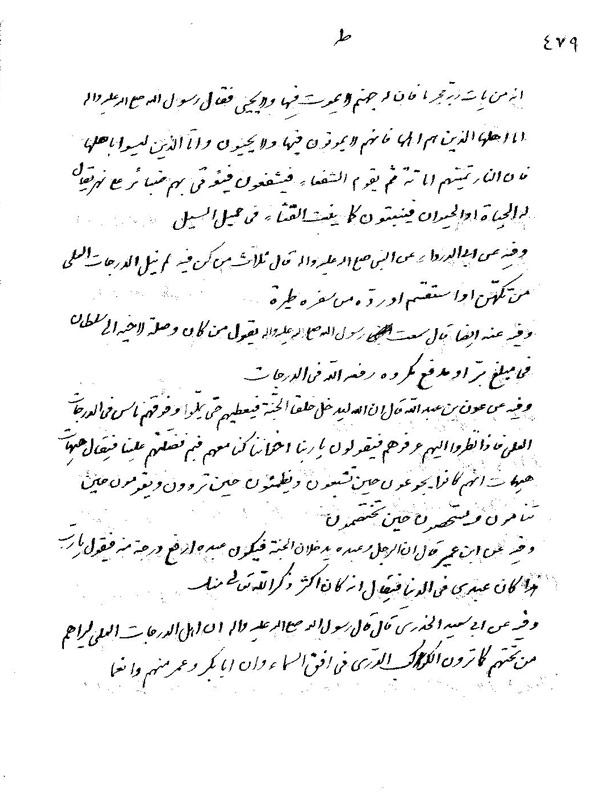 ٤٧٩
ط
انه من يات ربه مجرما فان له جهنم لا يموت فيها ولا يحيى فقال رسول الله صلع اله عليه واله
اما اهلها الذين هم اهلها فانهم لا يموتون فيها ولا يحيون واما الذين ليسوا باهلها
فان النار تميتهم اماتة ثم يقوم الشفعاء فيشفعون فيؤتى بهم ضبائر على نهر يقال
له الحياة او الحيوان فينبتون كما ينبت القثاء في حميل السيل
وفيه عن ابي الدرداء عن النبي صلع اله عليه واله قال ثلاث من كن فيه لم ينل الدرجات العلى
من تكهن او استقسم او رده من سفره طيرة
وفيه عنه ايضا قال سمعت رسول الله صلع اله عليه واله يقول من كان وصلة لاخيه الى سلطان
في مبلغ بر او مدفع مكروه رفعه الله في الدرجات
وفيه عن عون بن عبد الله قال ان الله ليدخل خلقا الجنة فيعطيهم حتى يملوا وفوقهم ناس في الدرجات
العلى فاذا نظروا اليهم عرفوهم فيقولون يا ربنا اخواننا كنا معهم فبم فضلتهم علينا فيقال هيهات
هيهات انهم كانوا يجوعون حين تشبعون ويظمئون حين تروون ويقومون حين
تنامون ويشخصون حين تختصمون
وفيه عن ابن عمير قال ان الرجل وعبده يدخلان الجنة فيكون عبده ارفع درجة منه فيقول يا رب
هذا كان عبدي في الدنيا فيقال انه كان اكثر ذكرا لله تعالى منك
وفيه عن ابي سعيد الخدري قال قال رسول اله صلع اله عليه واله ان اهل الدرجات العلى ليراهم
من تحتهم كما ترون الكوكب الدري في افق السماء وان ابا بكر وعمر منهم وانعما